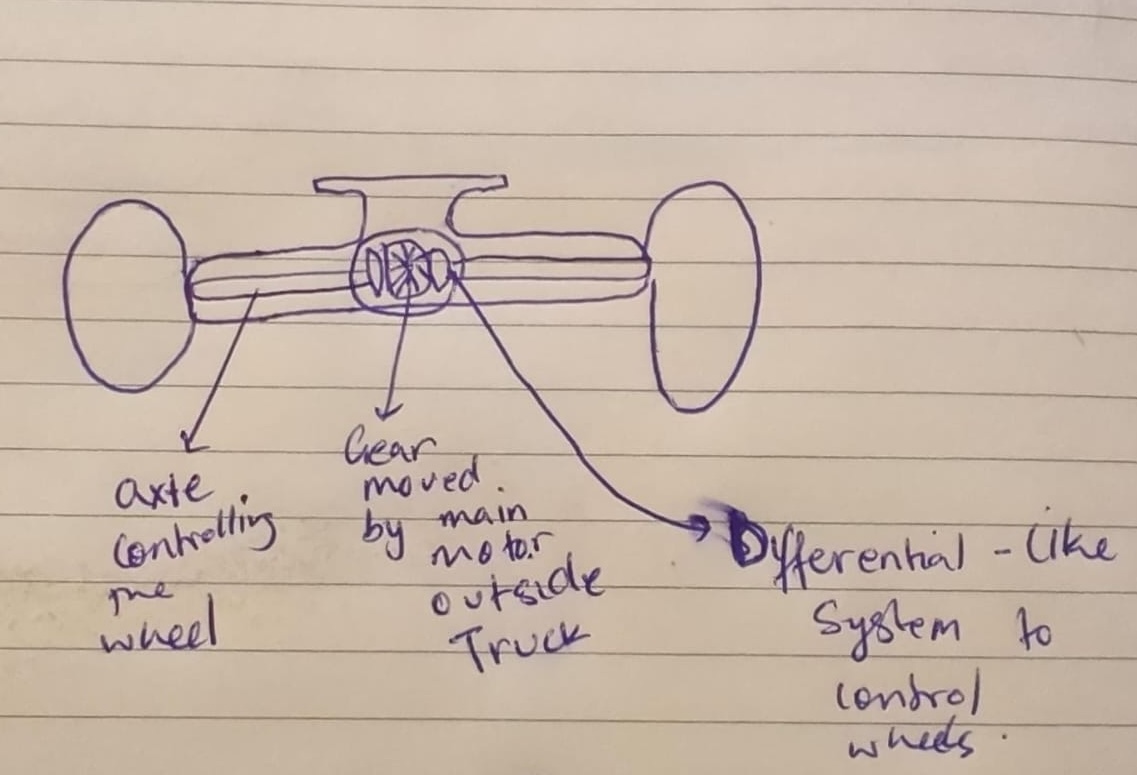 axte
controlling
the
wheel
Gear
moved
by main
motor
outside
Truck
Differential - like
System to
control
wheels.